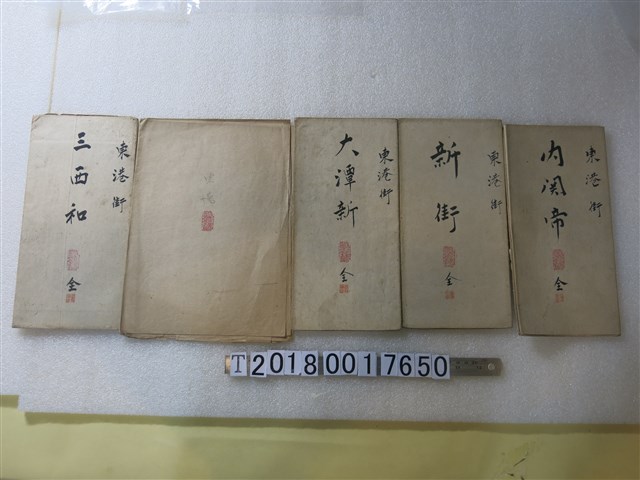 東港街
三西和
全
東港街
大潭新
全
東港街
新街
全
東港街
內関帝
全
T20180017650